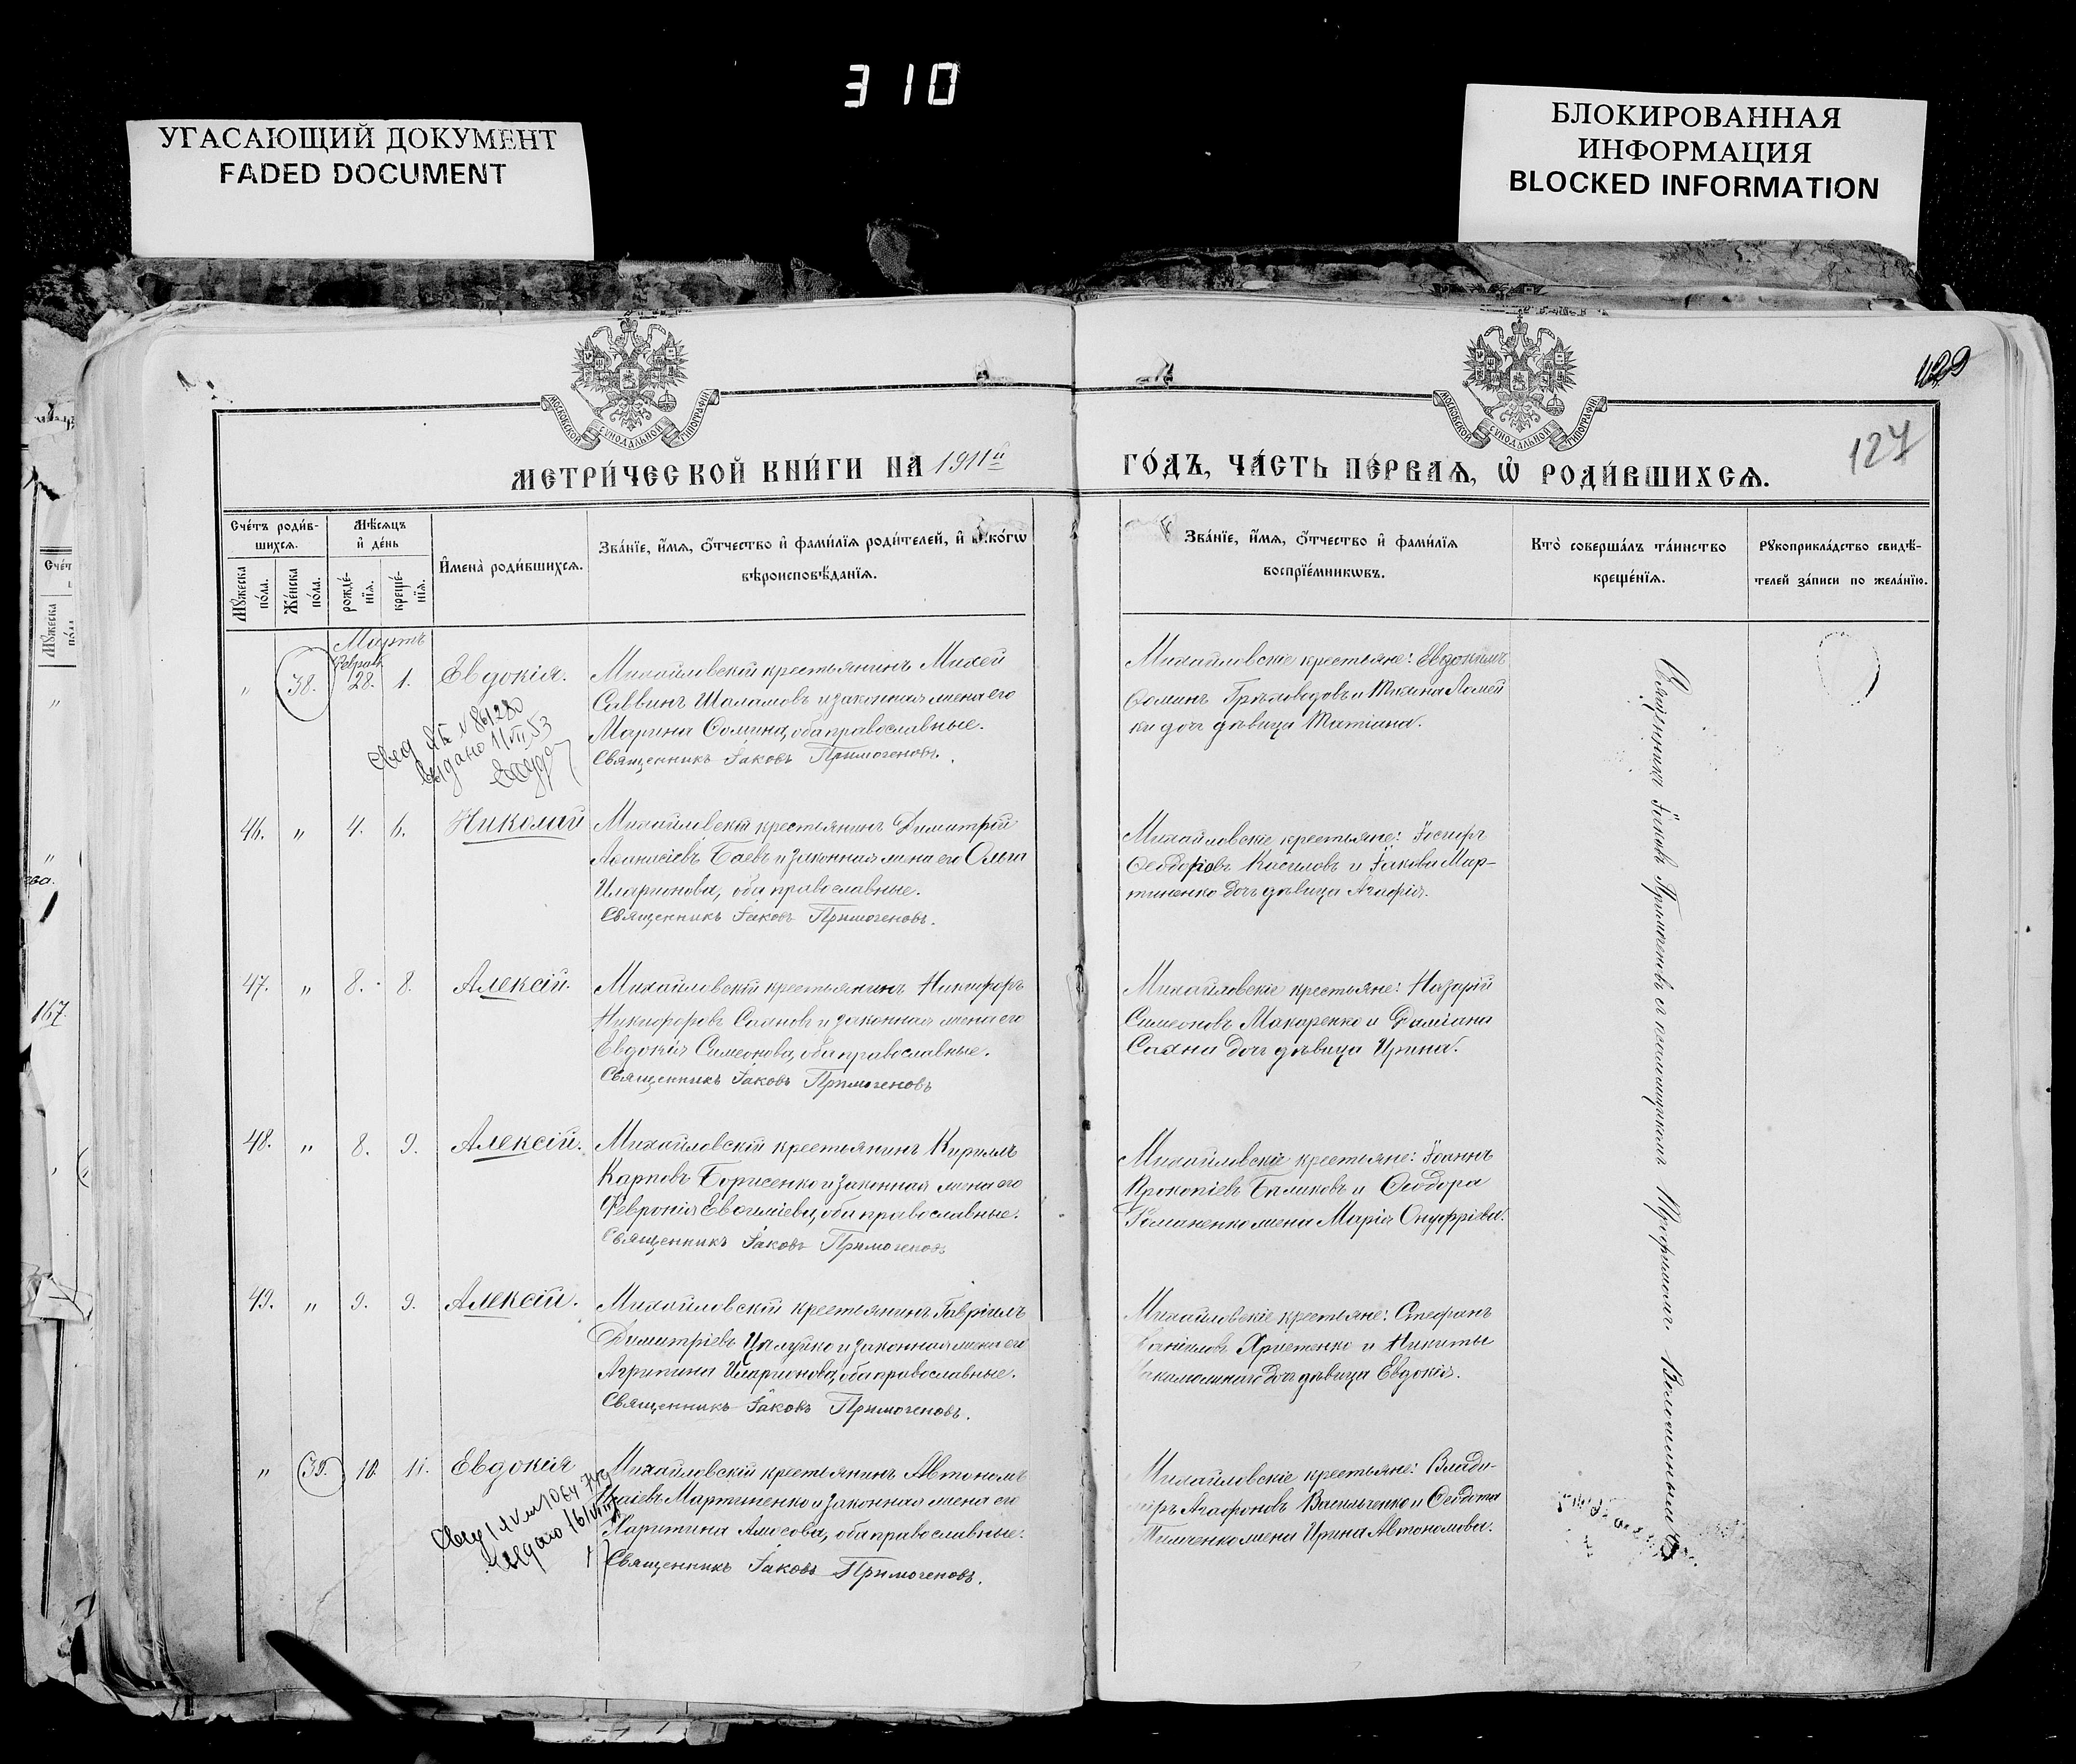 310
УГАСАЮЩИЙ ДОКУМЕНТ
FADED DOCUMENT
БЛОКИРОВАННАЯ
ИНФОРМАЦИЯ
BLOCKED INFORMATION
МОСКОВСКОЙ СѴНОДАЛЬНОЙ ТИПОГРАФІИ
МОСКОВСКОЙ СѴНОДАЛЬНОЙ ТИПОГРАФІИ
127
МЕТРИ́ЧЕСКОЙ КНИ́ГИ НА 1911й
ГО́ДЪ, ЧА́СТЬ ПЕ́РВАѦ, Ѡ҆ РОДИ́ВШИХСѦ.
Сче́тъ роди́в-
шихсѧ.
Мꙋ́жеска по́ла.
Же́нска по́ла.
Мѣ́сѧцъ
и҆ де́нь
рожде́-
нїѧ.
креще́-
нїѧ.
И҆мена̀ роди́вшихсѧ.
Зва́нїе, и҆́мѧ, ѻ҆́тчество и҆ фами́лїѧ роди́телей, и҆ како́гѡ
вѣроисповѣ́данїѧ.
Зва́нїе, и҆́мѧ, ѻ҆́тчество и҆ фами́лїѧ
воспрїе́мникѡвъ.
Кто̀ соверша́лъ та́инство
креще́нїѧ.
Рꙋкоприкла́дство свидѣ́-
телей за́писи по жела́нїю.
Мартъ
" 38. Февраль 28. 1. Евдокія.
Михайловскій крестьянинъ Михей
Саввинъ Шаламовъ и законная жена его
Марина Ѳомина, оба православные.
Священникъ Іаковъ Примогеновъ.
Михайловскіе крестьяне: Евдокимъ
Ѳоминъ
дочь дѣвица Татіана.
выдано 11/VII 53
46. " 4. 6. Николай
Михайловскій крестьянинъ Димитрій
Аѳанасіевъ Баевъ и законная жена его Ольга
Иларионова, оба православные.
Священникъ Іаковъ Примогеновъ.
Михайловскіе крестьяне: Іосифъ
Ѳеодоровъ Касиловъ и Іакова Мар-
тиненко дочь дѣвица Агафія.
47. " 8. 8. Алексій.
Михайловскій крестьянинъ Никифоръ
Никифоровъ Саяновъ и законная жена его
Евдокія Симеонова, оба православные.
Священникъ Іаковъ Примогеновъ
Михайловскіе крестьяне: Назарій
Симеоновъ Макаренко и Даміана
Саяна дочь дѣвица Ирина.
48. " 8. 9. Алексій.
Михайловскій крестьянинъ Кириллъ
Карповъ Борисенко и законная жена его
Феврonія Евѳиміева, оба православные.
Священникъ Іаковъ Примогеновъ
Михайловскіе крестьяне: Іоаннъ
Прокопіевъ Быликовъ и Ѳеодора
Романенко жена Марія Онуфріева.
49. " 9. 9. Алексій.
Михайловскій крестьянинъ Гавріилъ
Димитріевъ и законная жена его
Агрипина Иларионова, оба православные.
Священникъ Іаковъ Примогеновъ.
Михайловскіе крестьяне: Стефанъ
Даніиловъ Христенко и Никиты
дочь дѣвица Евдокія.
" 39. 10. 11. Евдокія
Михайловскій крестьянинъ Автономъ
Мартиненко и законная жена его
Харитина Амосова, оба православные.
Священникъ Іаковъ Примогеновъ.
Михайловскіе крестьяне: Влади-
міръ Агафоновъ Васильченко и Ѳеодота
жена Ирина Автономова.
Священникъ Іаковъ Примогеновъ съ псаломщикомъ
167.